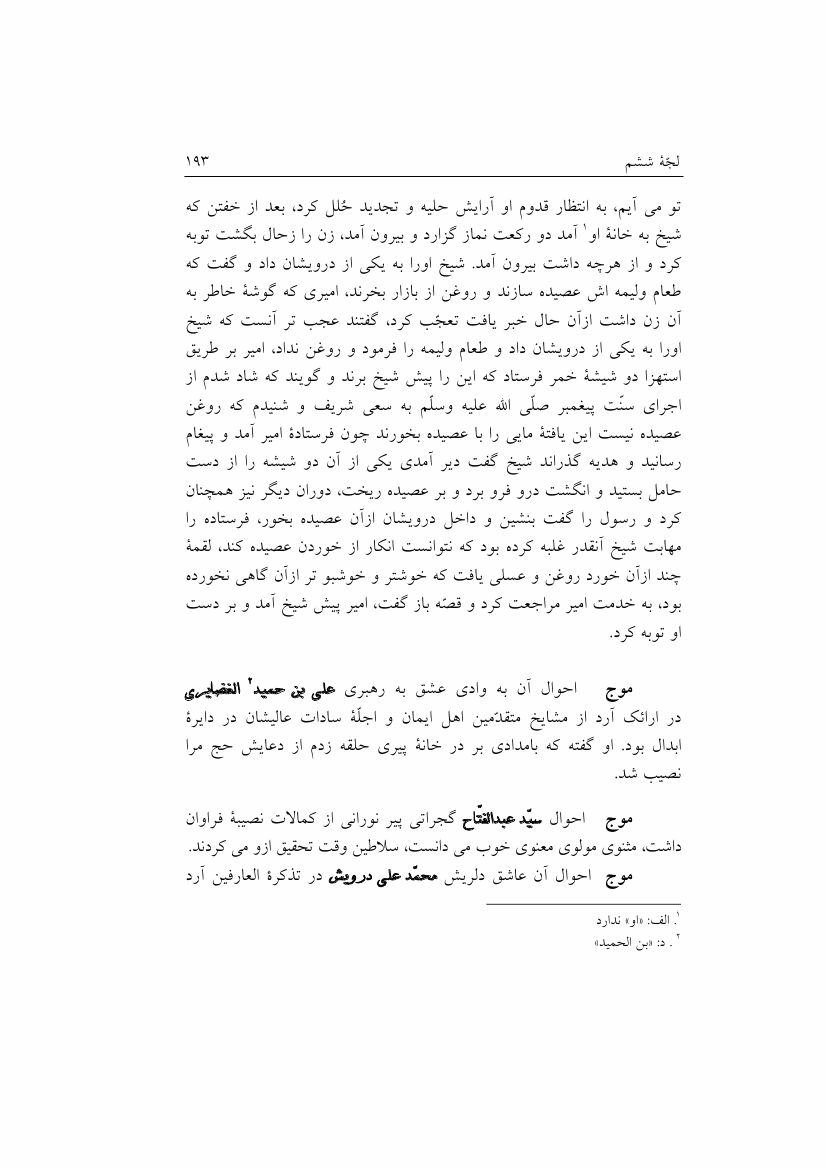 لجّهٔ ششم ۱۹۳
تو می آیم، به انتظار قدوم او آرایش حلیه و تجدید حُلل کرد، بعد از خفتن که
شیخ به خانهٔ او۱ آمد دو رکعت نماز گزارد و بیرون آمد، زن را زحال بگشت توبه
کرد و از هرچه داشت بیرون آمد. شیخ اورا به یکی از درویشان داد و گفت که
طعام ولیمه اش عصیده سازند و روغن از بازار بخرند، امیری که گوشهٔ خاطر به
آن زن داشت ازآن حال خبر یافت تعجّب کرد، گفتند عجب تر آنست که شیخ
اورا به یکی از درویشان داد و طعام ولیمه را فرمود و روغن نداد، امیر بر طریق
استهزا دو شیشهٔ خمر فرستاد که این را پیش شیخ برند و گویند که شاد شدم از
اجرای سنّت پیغمبر صلّی الله علیه وسلّم به سعی شریف و شنیدم که روغن
عصیده نیست این یافتهٔ مایی را با عصیده بخورند چون فرستادهٔ امیر آمد و پیغام
رسانید و هدیه گذراند شیخ گفت دیر آمدی یکی از آن دو شیشه را از دست
حامل بستید و انگشت درو فرو برد و بر عصیده ریخت، دوران دیگر نیز همچنان
کرد و رسول را گفت بنشین و داخل درویشان ازآن عصیده بخور، فرستاده را
مهابت شیخ آنقدر غلبه کرده بود که نتوانست انکار از خوردن عصیده کند، لقمهٔ
چند ازآن خورد روغن و عسلی یافت که خوشتر و خوشبو تر ازآن گاهی نخورده
بود، به خدمت امیر مراجعت کرد و قصّه باز گفت، امیر پیش شیخ آمد و بر دست
او توبه کرد.
موج احوال آن به وادی عشق به رهبری علی بن حمید۲ الغضایری
در ارائک آرد از مشایخ متقدّمین اهل ایمان و اجلّهٔ سادات عالیشان در دایرهٔ
ابدال بود. او گفته که بامدادی بر در خانهٔ پیری حلقه زدم از دعایش حج مرا
نصیب شد.
موج احوال سیّد عبدالفتّاح گجراتی پیر نورانی از کمالات نصیبهٔ فراوان
داشت، مثنوی مولوی معنوی خوب می دانست، سلاطین وقت تحقیق ازو می کردند.
موج احوال آن عاشق دلریش محمّد علی درویش در تذکرة العارفین آرد
۱. الف: «او» ندارد
۲. د: «بن الحمید»